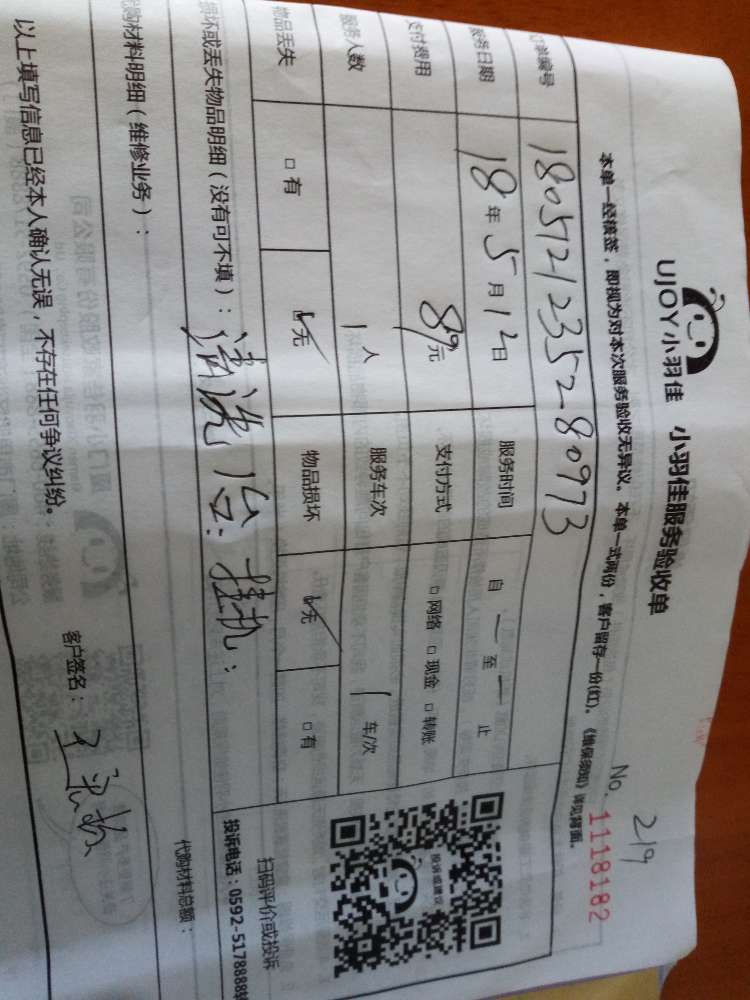 UJOY小羽佳 小羽佳服务验收单
219
No. 1118182
本单一经核签，即视为对本次服务验收无异议。本单一式两份，客户留存一份(红)。《维保须知》详见背面。
订单编号 1805121235280973
服务日期 18年5月12日 服务时间 自 一 至 一 止
支付费用 89元 支付方式 □网络 □现金 □转账
服务人数 1人 服务车次 1车/次
物品丢失 □有 □无 物品损坏 □无 □有
损坏或丢失物品明细（没有可不填）：清洗1台:挂机:
代购材料明细（维修业务）： 代购材料总额：
投诉或建议
扫码评价或投诉
投诉电话：0592-5178888转
以上填写信息已经本人确认无误，不存在任何争议纠纷。 客户签名：